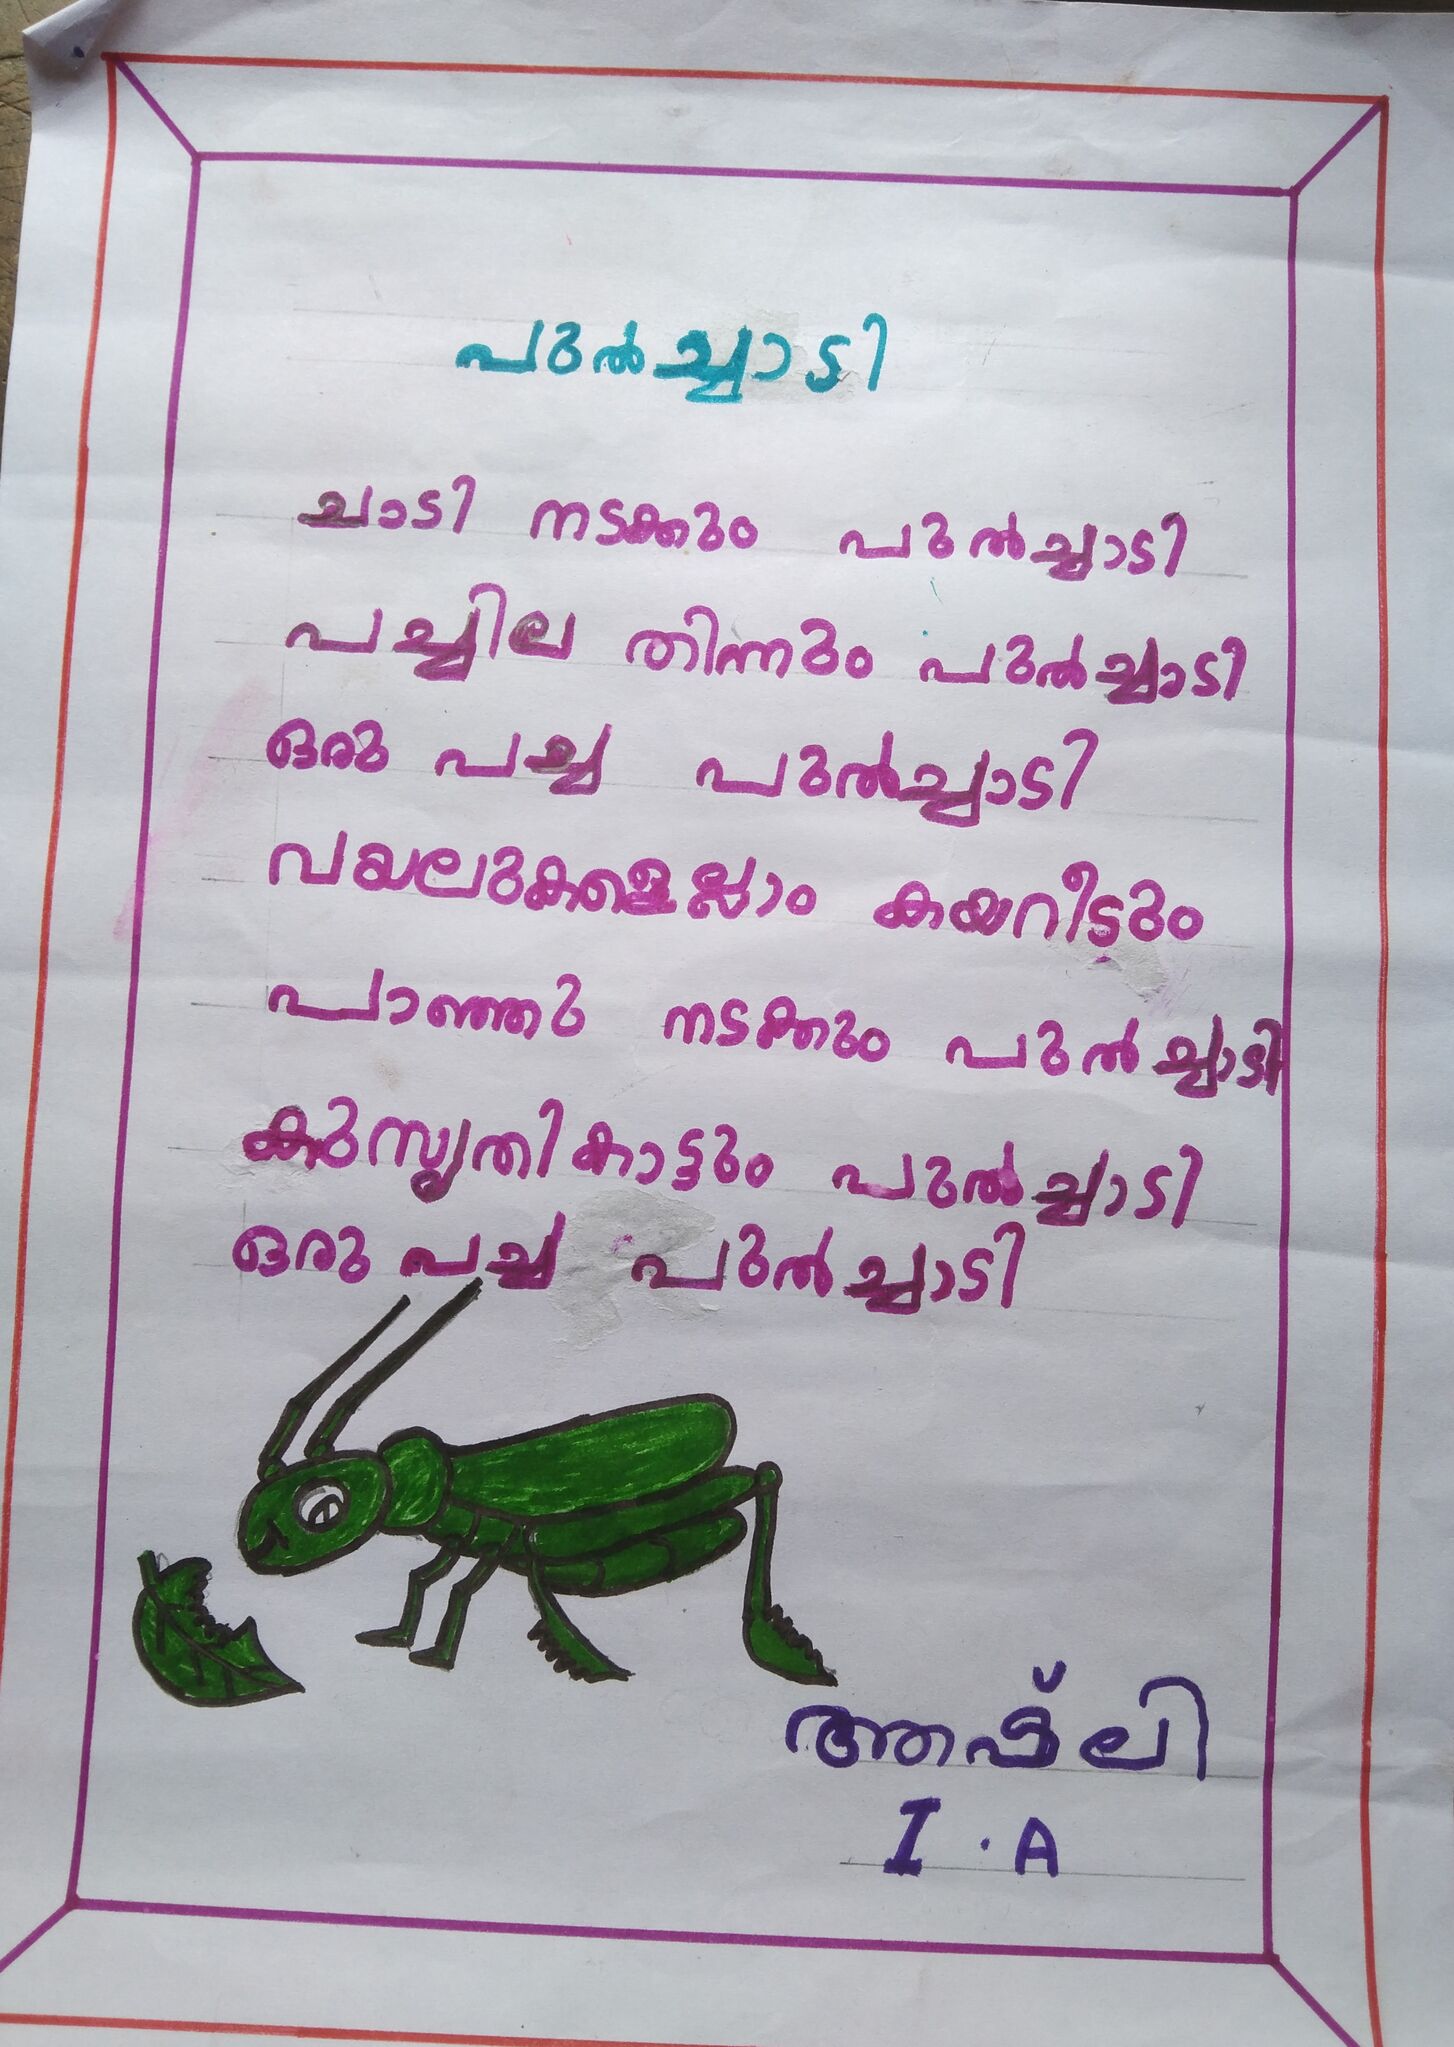 പുൽച്ചാടി
ചാടി നടക്കും പുൽച്ചാടി
പച്ചില തിന്നും പുൽച്ചാടി
ഒരു പച്ച പുൽച്ചാടി
വയലുകളെല്ലാം കയറീടും
പാഞ്ഞു നടക്കും പുൽച്ചാടി
കുസൃതികാട്ടും പുൽച്ചാടി
ഒരു പച്ച പുൽച്ചാടി
അഷ്‌ലി
I . A